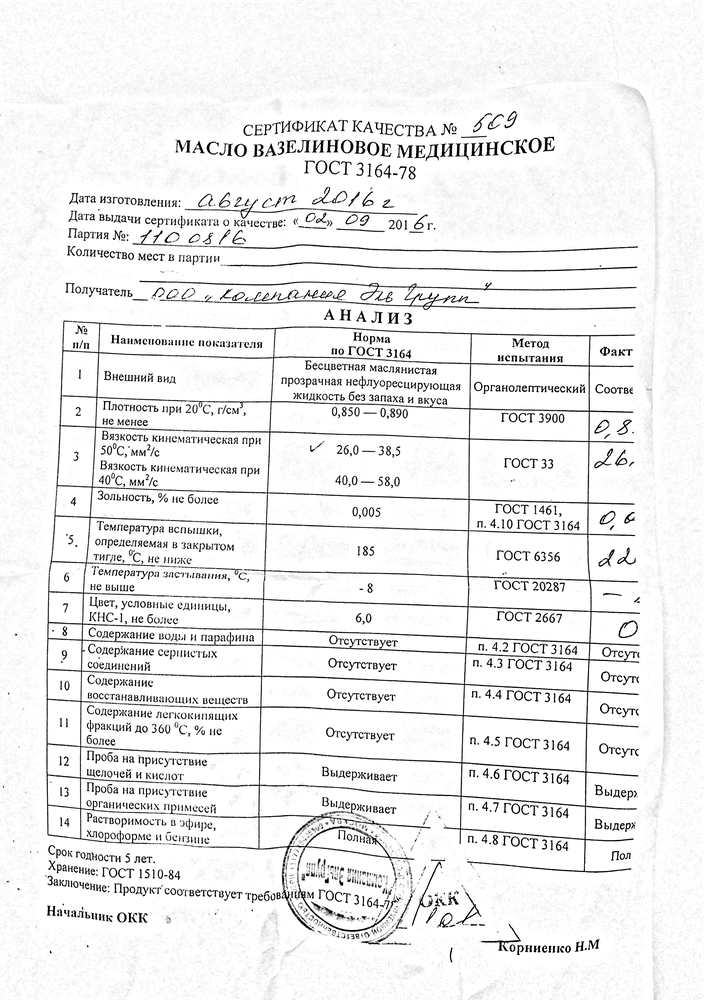 СЕРТИФИКАТ КАЧЕСТВА № 569
МАСЛО ВАЗЕЛИНОВОЕ МЕДИЦИНСКОЕ
ГОСТ 3164-78
Дата изготовления: август 2016 г
Дата выдачи сертификата о качестве: «02» 09 2016 г.
Партия №: 1100816
Количество мест в партии
Получатель ООО „Компания Эль Групп"
АНАЛИЗ
№ п/п Наименование показателя Норма по ГОСТ 3164 Метод испытания Факт
1 Внешний вид Бесцветная маслянистая прозрачная нефлуоресцирующая жидкость без запаха и вкуса Органолептический Соотве
2 Плотность при 20⁰С, г/см³, не менее 0,850 — 0,890 ГОСТ 3900 0,8.
3 Вязкость кинематическая при 50⁰С, мм²/с ✓ 26,0 — 38,5 ГОСТ 33 26,
Вязкость кинематическая при 40⁰С, мм²/с 40,0 — 58,0
4 Зольность, % не более 0,005 ГОСТ 1461, п. 4.10 ГОСТ 3164 0,
5. Температура вспышки, определяемая в закрытом тигле, ⁰С, не ниже 185 ГОСТ 6356 22
6 Температура застывания, ⁰С, не выше - 8 ГОСТ 20287 —
7 Цвет, условные единицы, КНС-1, не более 6,0 ГОСТ 2667 0
8 Содержание воды и парафина Отсутствует п. 4.2 ГОСТ 3164 Отсутс
9 Содержание сернистых соединений Отсутствует п. 4.3 ГОСТ 3164 Отсутс
10 Содержание восстанавливающих веществ Отсутствует п. 4.4 ГОСТ 3164 Отсутс
11 Содержание легкокипящих фракций до 360 ⁰С, % не более Отсутствует п. 4.5 ГОСТ 3164 Отсутс
12 Проба на присутствие щелочей и кислот Выдерживает п. 4.6 ГОСТ 3164 Выдерж
13 Проба на присутствие органических примесей Выдерживает п. 4.7 ГОСТ 3164 Выдерж
14 Растворимость в эфире, хлороформе и бензине Полная п. 4.8 ГОСТ 3164 Пол
Срок годности 5 лет.
Хранение: ГОСТ 1510-84
Заключение: Продукт соответствует требованиям ГОСТ 3164-7
ОКК
Начальник ОКК
Корниенко Н.М